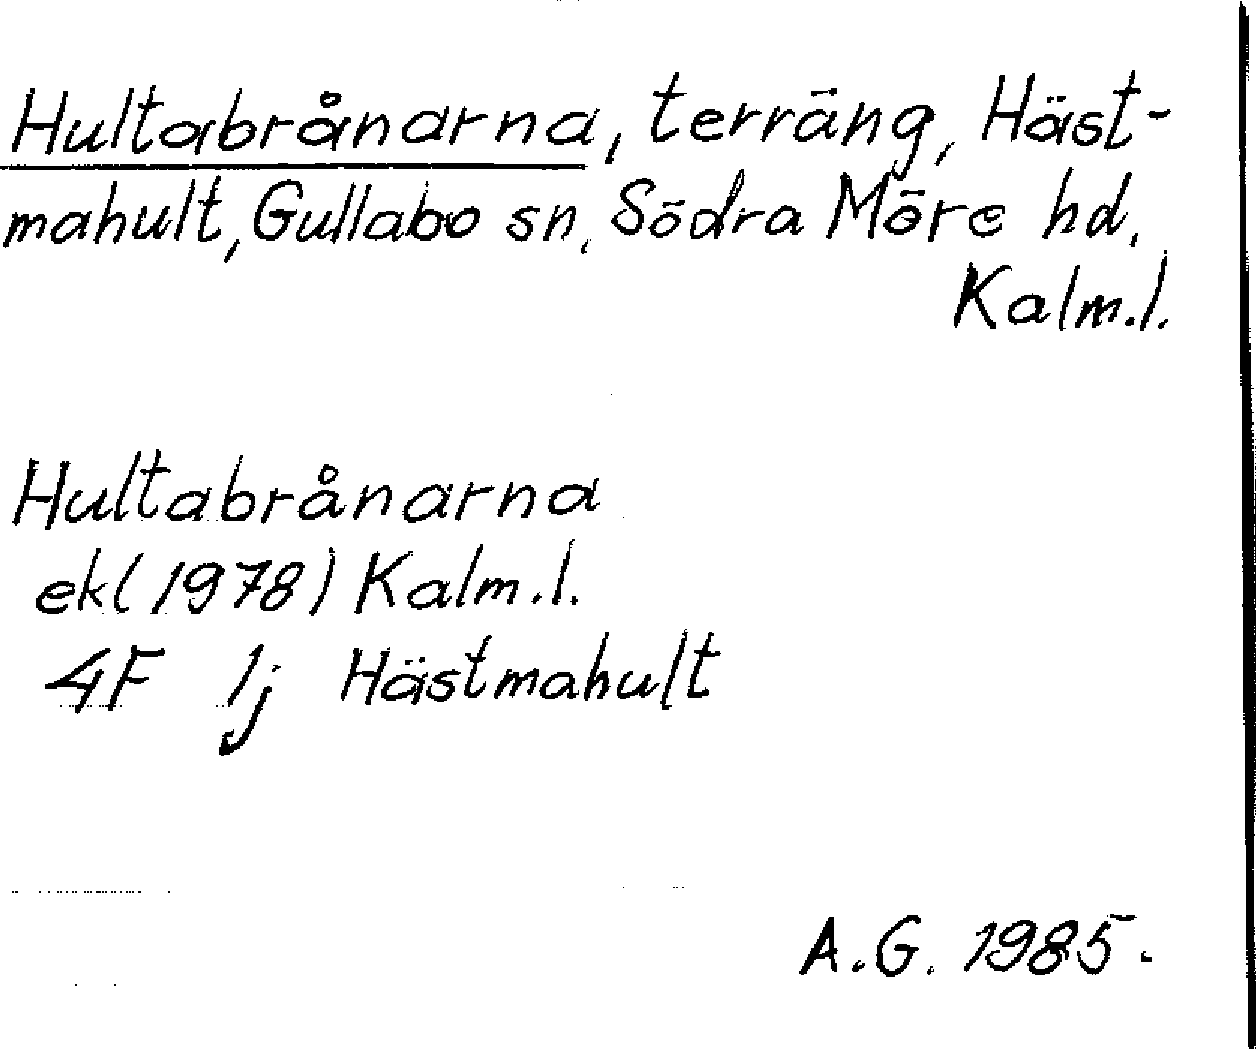 Hultabrånarna, terräng, Häst-
mahult, Gullabo sn, Södra Möre hd,
Kalm.l.
Hultabrånarna
ek(1978) Kalm.l.
4F 1j Hästmahult
A.G. 1985.